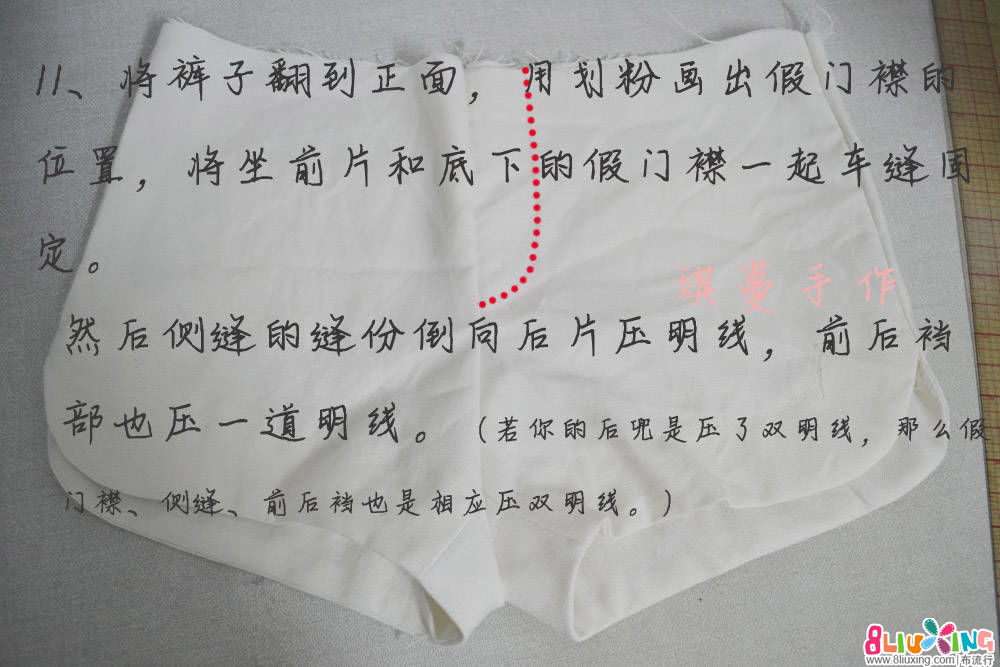 11、将裤子翻到正面，用划粉画出假门襟的
位置，将坐前片和底下的假门襟一起车缝固
定。
琪蔓手作
然后侧缝的缝份倒向后片压明线，前后裆
部也压一道明线。（若你的后兜是压了双明线，那么假
门襟、侧缝、前后裆也是相应压双明线。）
8LIUXING
www.8liuxing.com 布流行